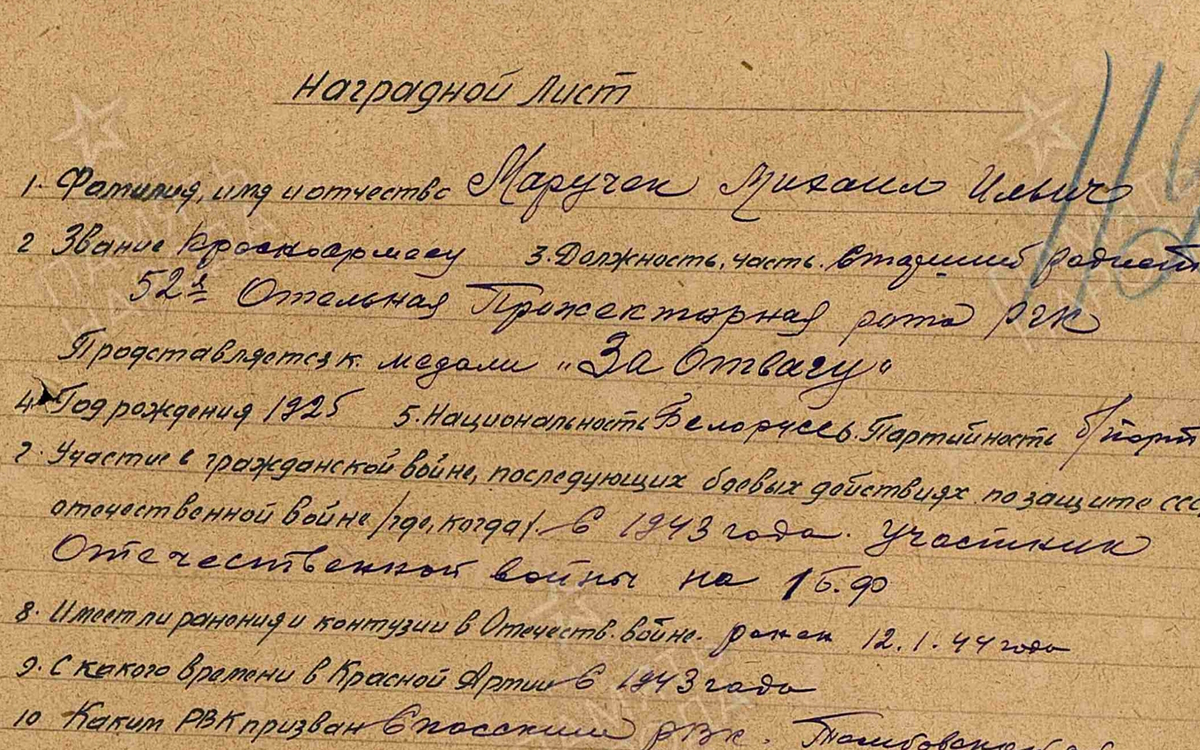 Наградной Лист
1. Фамилия, имя и отчество Маручек Михаил Ильич
2 Звание Красноармеец 3. Должность, часть. Старший радист
52я Отельная Прожекторная рота РГК
Представляется к. медали "За Отвагу"
4. Год рождения 1925 5. Национальность Белорус 6. Партийность б/парт
7. Участие в гражданской войне, последующих боевых действиях по защите ССС
отечественной войне /где, когда/. С 1943 года. Участник
Отечественной войны на 1 б. ф
8. Имеет ли ранения и контузии в Отечеств. войне. ранен 12.1.44 года
9. С какого времени в Красной Армии С 1943 года
10 Каким РВК призван Спасским РВК. Тамбовской